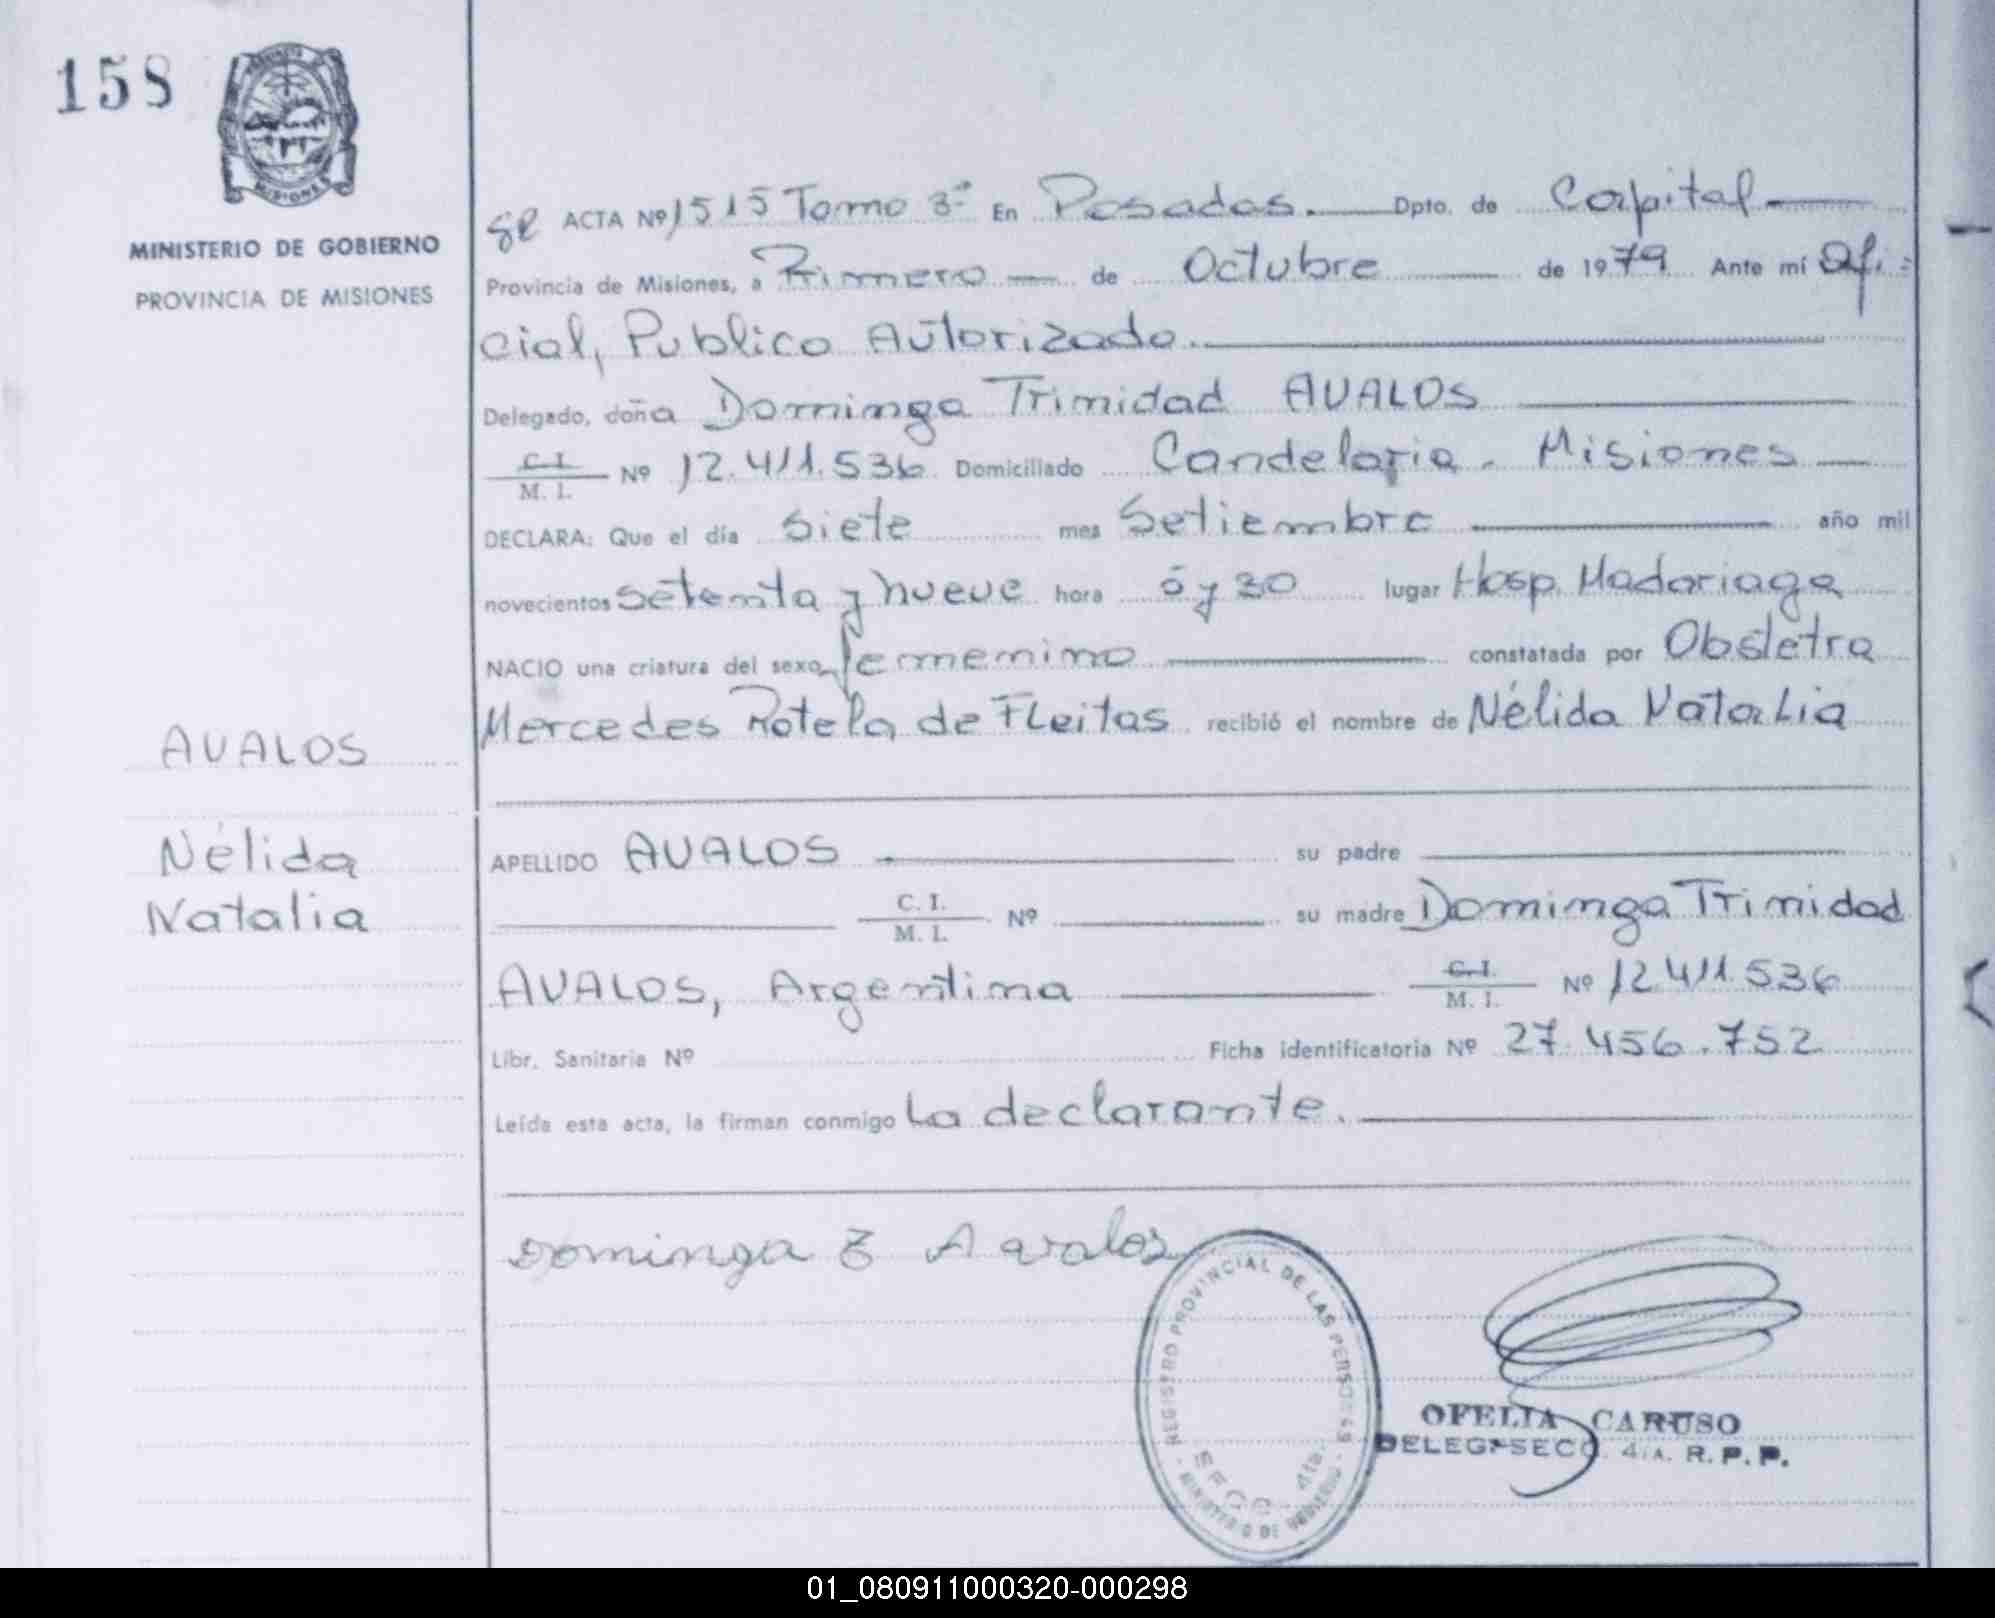 158
MISIONES
MINISTERIO DE GOBIERNO
PROVINCIA DE MISIONES
AVALOS
Nélida
Natalia
ACTA Nº 1515 Tomo 3º En Posadas. Dpto. de Capital
Provincia de Misiones, a Primero de Octubre de 1979 Ante mí Ofi=
cial, Publico Autorizado.
Delegado, doña Dominga Trinidad AVALOS
C. I. / M. I. Nº 12.411.536 Domiciliado Candelaria - Misiones
DECLARA: Que el día Siete mes Setiembre año mil
novecientos setenta y nueve hora 0 y 30 lugar Hosp. Madariaga
NACIO una criatura del sexo femenino constatada por Obstetra
Mercedes Rotela de Fleitas recibió el nombre de Nélida Natalia
APELLIDO AVALOS su padre
C. I. / M. I. Nº su madre Dominga Trinidad
AVALOS, Argentina C. I. / M. I. Nº 12.411.536
Libr. Sanitaria Nº Ficha identificatoria Nº 27.456.752
Leída esta acta, la firman conmigo La declarante.
Dominga T Avalos
REGISTRO PROVINCIAL DE LAS PERSONAS
SECC. 4ta.
- MINISTERIO DE GOBIERNO -
OFELIA CARUSO
DELEG. SECC. 4TA. R. P. P.
01_080911000320-000298